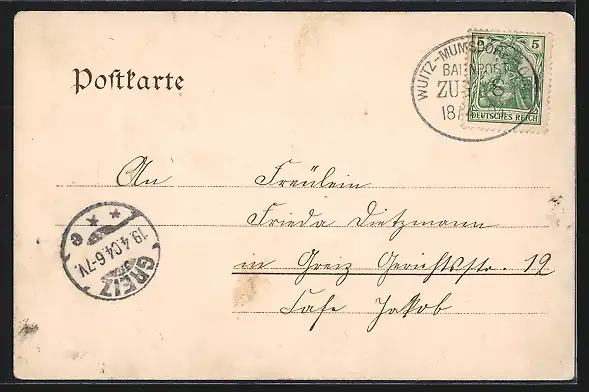 Postkarte
WUITZ-MUMSDORF
BAHNPOST
ZUG 8
18
5 5
DEUTSCHES REICH
An Fräulein
Frieda Dietzmann
in Greiz Gerichtsstr. 12
Cafe Jakob
GREIZ
19.4.04.6-7V.
* * e